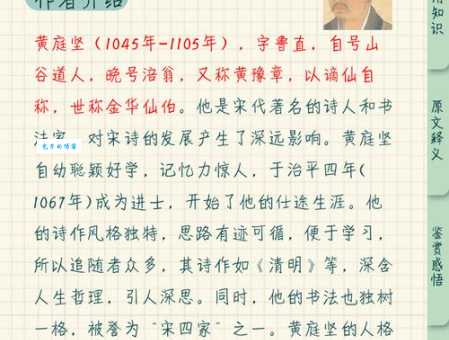 作者介绍
黄庭坚（1045年-1105年），字鲁直，自号山
谷道人，晚号涪翁，又称黄豫章，以谪仙自
称，世称金华仙伯。他是宋代著名的诗人和书
法家，对宋诗的发展产生了深远影响。黄庭坚
自幼聪颖好学，记忆力惊人，于治平四年(
1067年)成为进士，开始了他的仕途生涯。他
的诗作风格独特，思路有迹可循，便于学习，
所以追随者众多，其诗作如《清明》等，深含
人生哲理，引人深思。同时，他的书法也独树
一格，被誉为“宋四家”之一。黄庭坚的人格
用知识
原文释义
鉴赏感悟